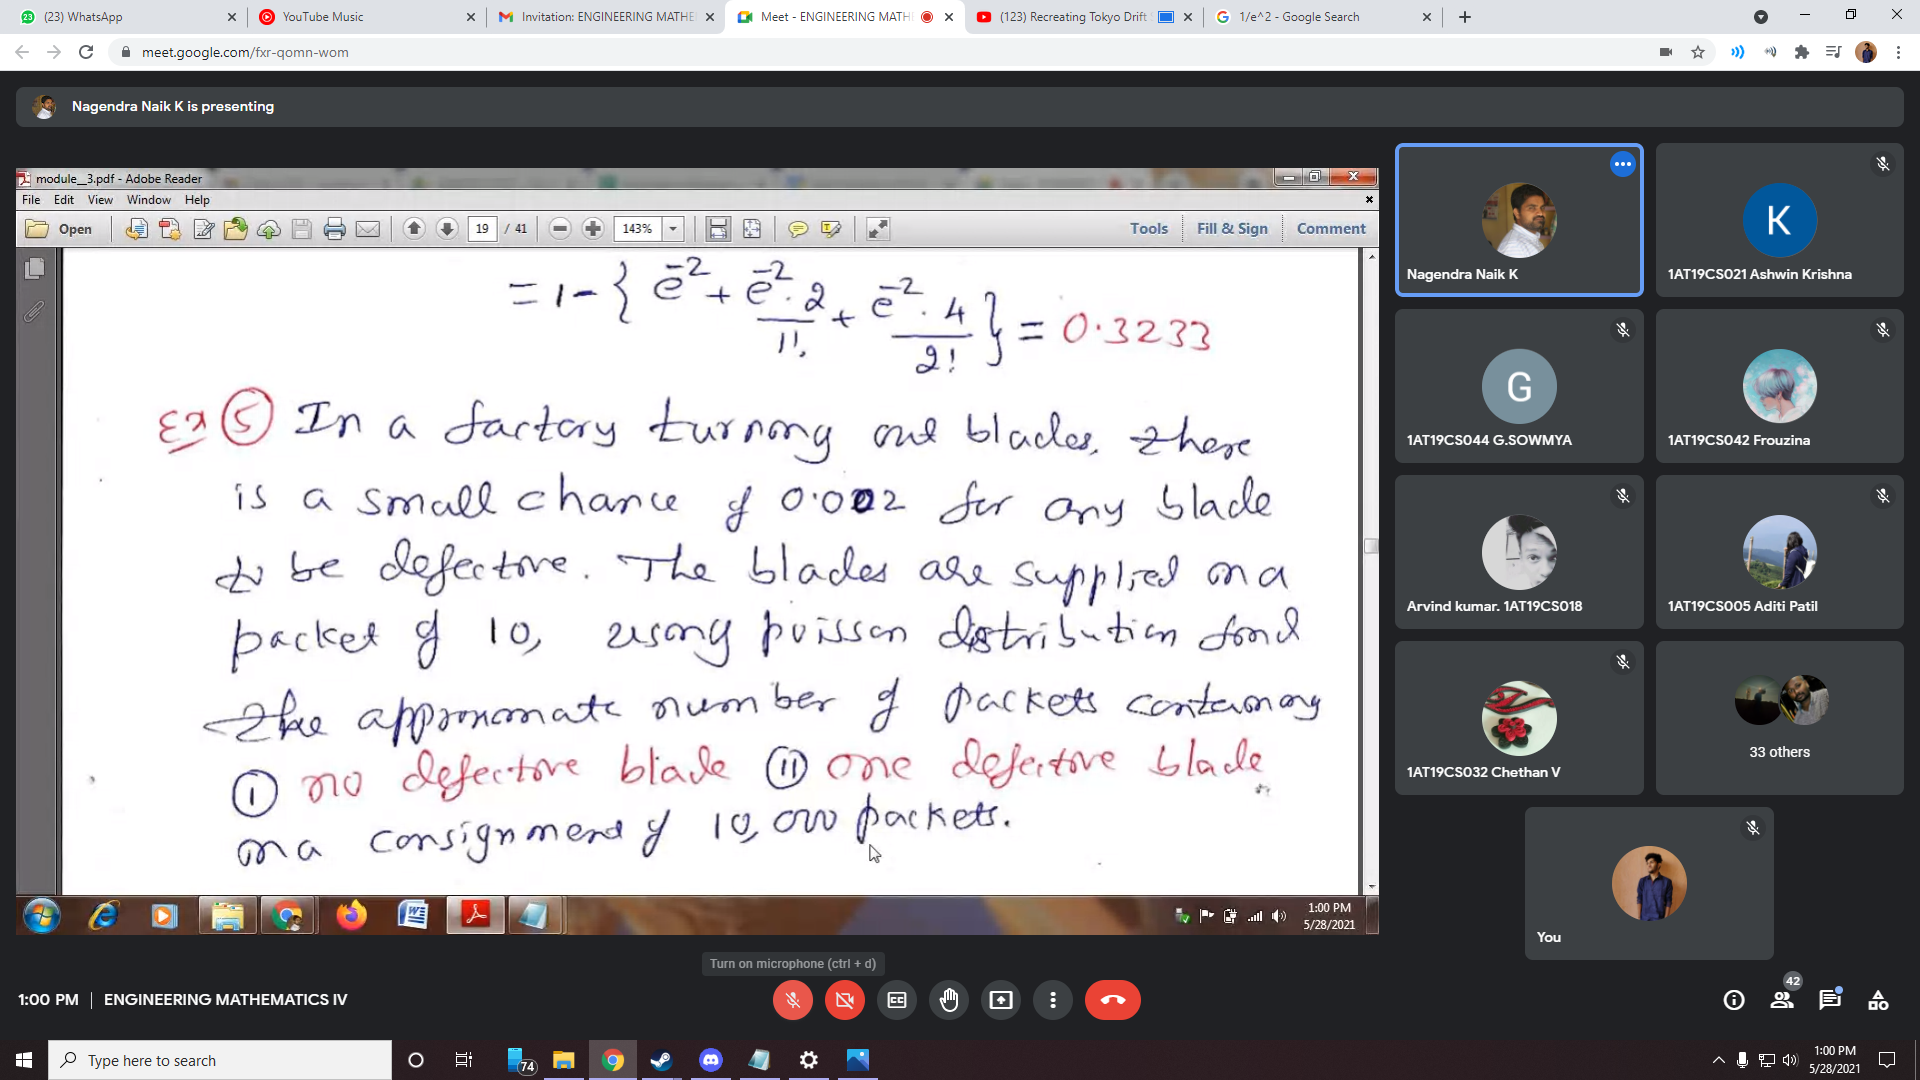 (23) WhatsApp
YouTube Music
Invitation: ENGINEERING MATHE
Meet - ENGINEERING MATH
(123) Recreating Tokyo Drift
1/e^2 - Google Search
meet.google.com/fxr-qomn-wom
Nagendra Naik K is presenting
module__3.pdf - Adobe Reader
File Edit View Window Help
Open 19 / 41 143% Tools Fill & Sign Comment
= 1 - { e^-2 + e^-2 . 2 / 1! + e^-2 . 4 / 2! } = 0.3233
Ex 5 In a factory turning out blades, there
is a small chance of 0.002 for any blade
to be defective. The blades are supplied in a
packet of 10, using poisson distribution find
the approximate number of packets containing
(i) no defective blade (ii) one defective blade
in a consignment of 10,000 packets.
1:00 PM
5/28/2021
Nagendra Naik K
K
1AT19CS021 Ashwin Krishna
G
1AT19CS044 G.SOWMYA
1AT19CS042 Frouzina
Arvind kumar. 1AT19CS018
1AT19CS005 Aditi Patil
1AT19CS032 Chethan V
33 others
You
Turn on microphone (ctrl + d)
1:00 PM | ENGINEERING MATHEMATICS IV
42
Type here to search
74
1:00 PM
5/28/2021